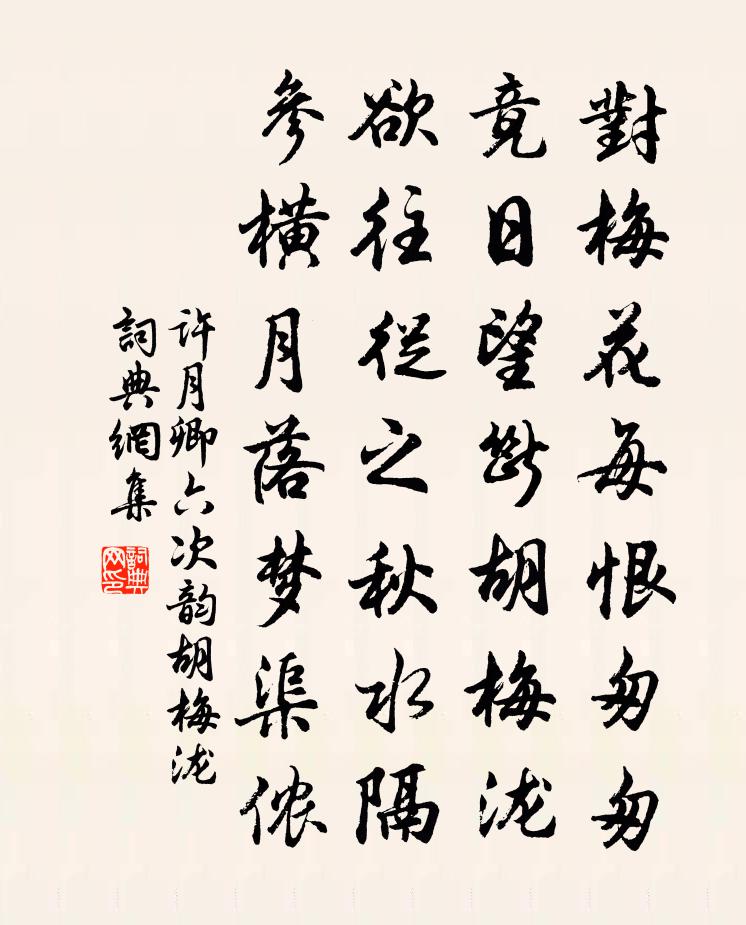 對梅花每恨匆匆
竟日望斷胡梅泷
欲往從之秋水隔
參橫月落梦渠侬
许月卿六次韵胡梅泷
詞典網集
詞典网印